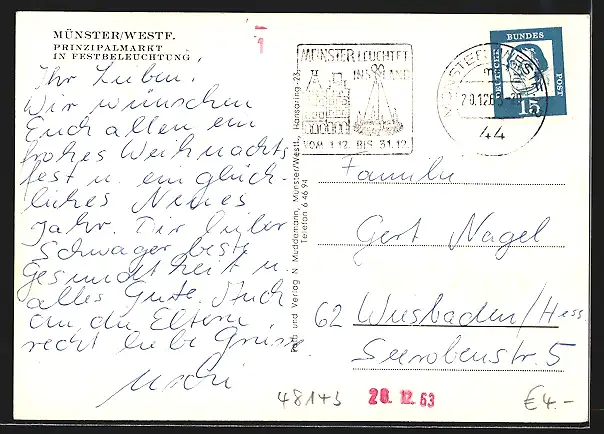 MÜNSTER/WESTF.
PRINZIPALMARKT
IN FESTBELEUCHTUNG
Ihr Lieben!
Wir wünschen
Euch allen ein
frohes Weihnachts
fest u. ein glück-
liches Neues
Jahr. Dir lieber
Schwager beste
Gesundheit u.
alles Gute. Auch
an die Eltern
recht liebe Grüsse
Uschi
1
MÜNSTER LEUCHTET
INS LAND
VOM 1.12. BIS 31.12.
44
DEUTSCHE BUNDESPOST
15
Foto und Verlag N. Muddemann, Münster/Westf., Hansaring 23,
Telefon 6 46 94
Familie
Gert Nagel
62 Wiesbaden/Hess.
Seerobenstr. 5
20. 12. 63
€4.-